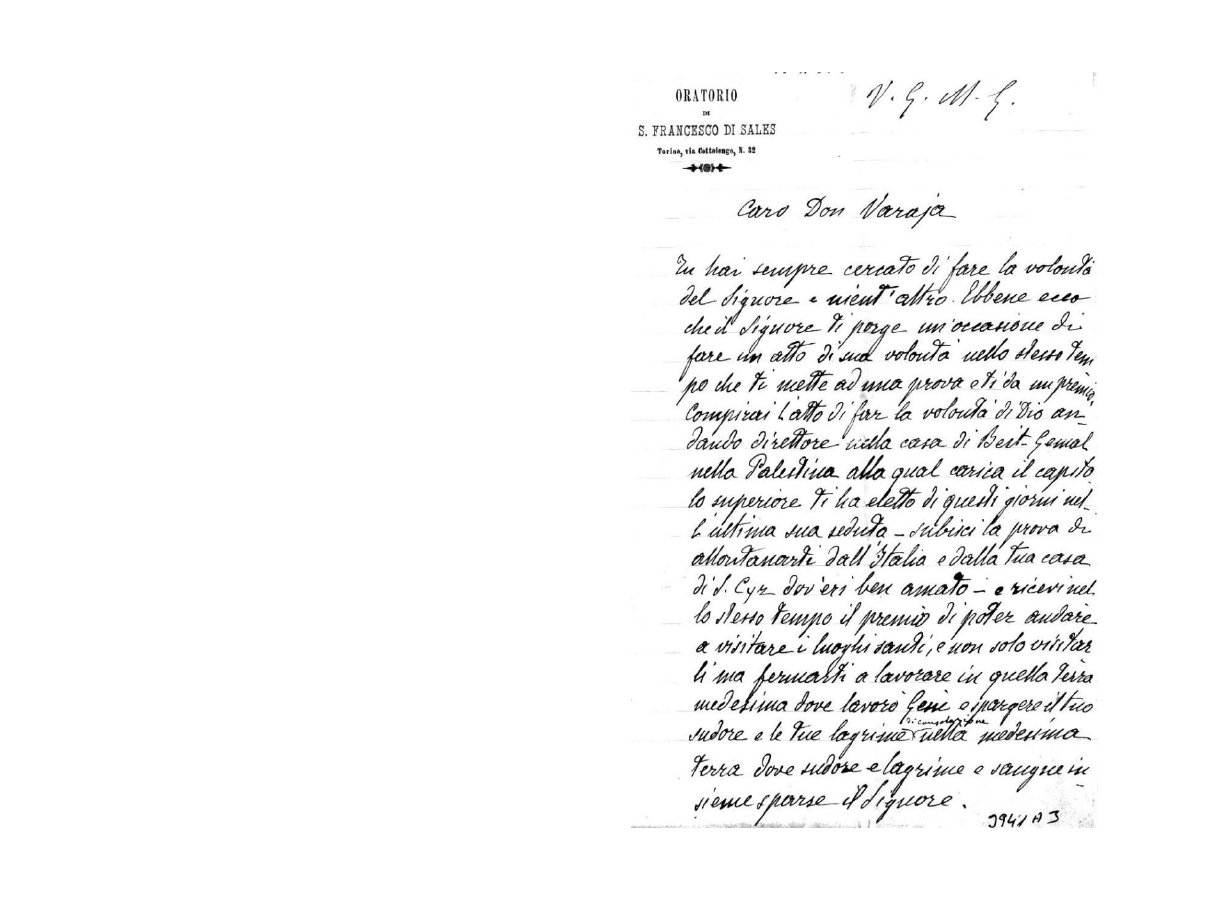 ORATORIO
DI
S. FRANCESCO DI SALES
Torino, via Cottolengo, N. 32
V. G. M. G.
Caro Don Varaja
Tu hai sempre cercato di fare la volontà
del Signore e nient'altro. Ebbene ecco
che il Signore ti porge un'occasione di
fare un atto di sua volontà nello stesso tem
po che ti mette ad una prova e ti da un premio.
Compirai l'atto di far la volontà di Dio an-
dando direttore nella casa di Beit-Gemal
nella Palestina alla qual carica il capito
lo superiore ti ha eletto di questi giorni nel-
l'ultima sua seduta – subisci la prova di
allontanarti dall'Italia e dalla tua casa
di S. Cyr dov'eri ben amato – e ricevi nel
lo stesso tempo il premio di poter andare
a visitare i luoghi santi, e non solo visitar
li ma fermarti a lavorare in quella terra
medesima dove lavorò Gesù e spargere il tuo
di consolazione
sudore e le tue lagrime nella medesima
terra dove sudore e lagrime e sangue in-
sieme sparse il Signore.
3941 A 3